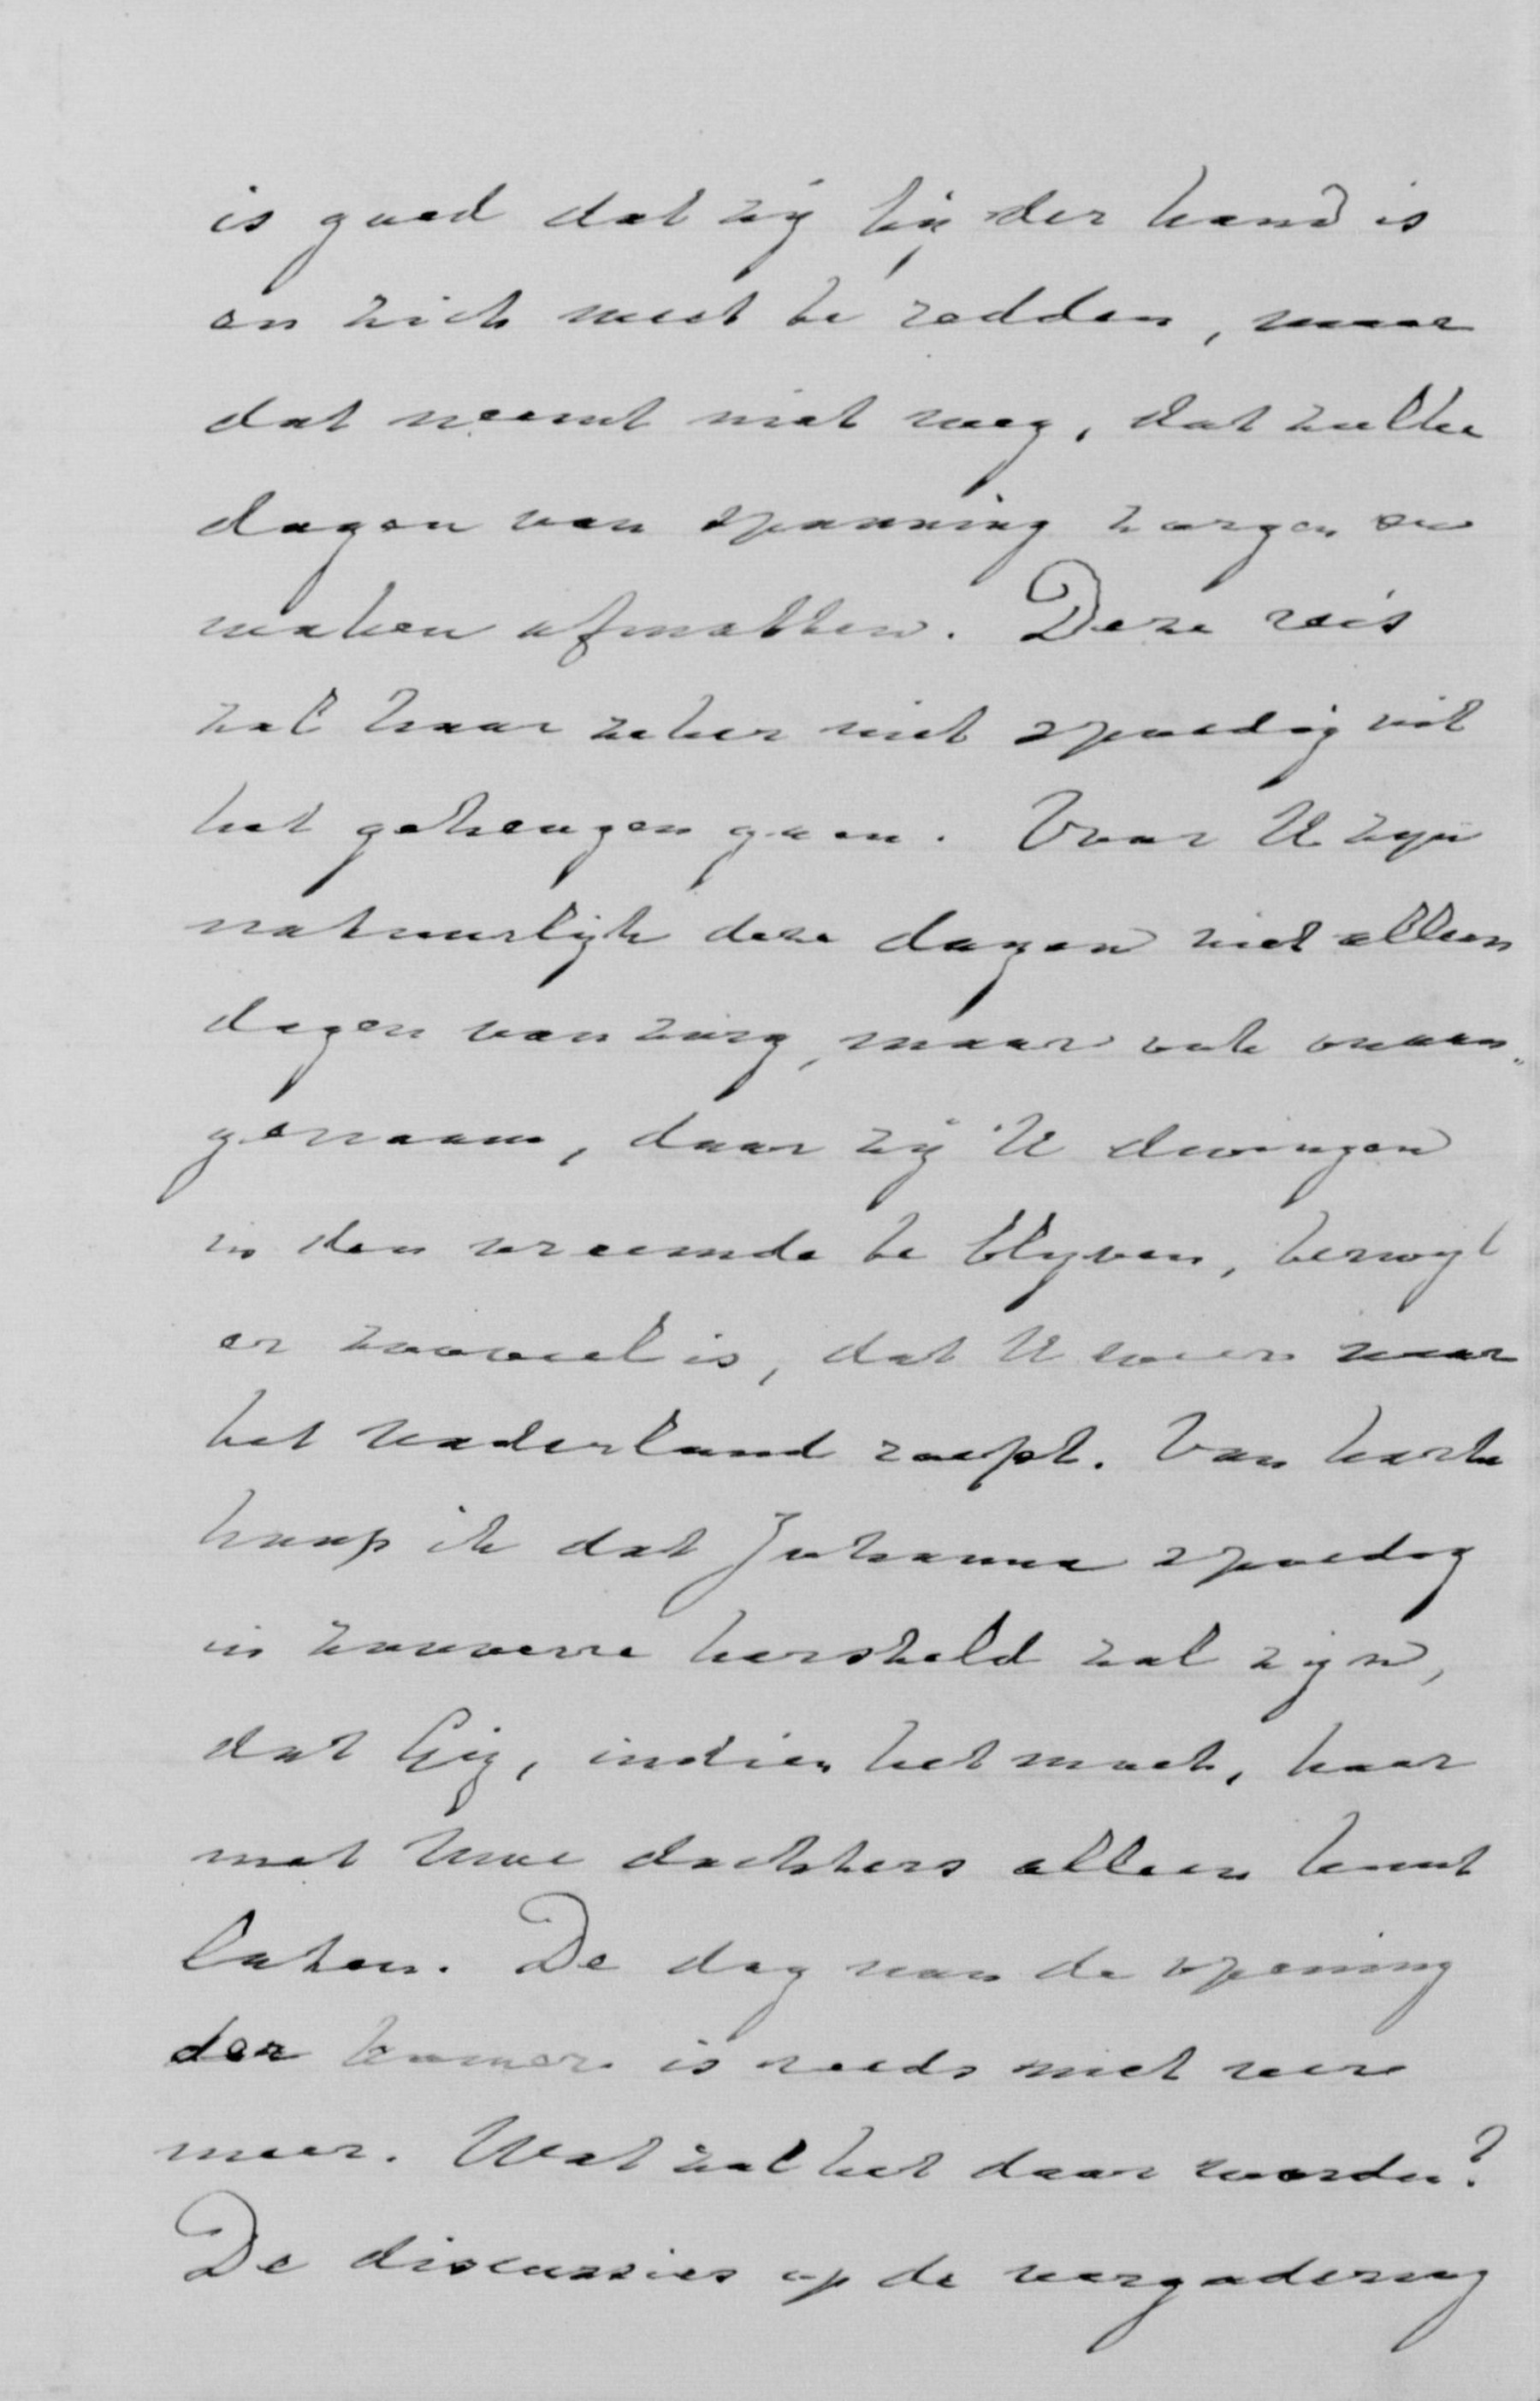 is goed dat zij bij der hand is
en zich weet te redden, maar
dat neemt niet weg, dat zulke
dagen van spanning zorgen en
waken afmatten. Deze reis
zal haar zeker niet spoedig uit
het geheugen gaan. Voor U zijn
natuurlijk deze dagen niet alleen
dagen van zorg, maar ook onaan„
genaam, daar zij U dwingen
in den vreemde te blijven, terwijl
er zooveel is, dat U weer naar
het vaderland roept. Van harte
hoop ik dat Johanna spoedig
in zooverre hersteld zal zijn,
dat Gij, indien het moet, haar
met Uwe dochters alleen kunt
laten. De dag van de opening
der kamers is reeds niet verre
meer. Wat zal het daar worden?
De discussies op de vergadering